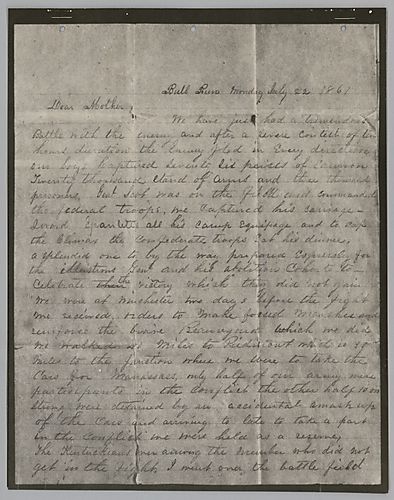 Bull Run Monday July 22 1861
Dear Mother,
We have just had a tremendous
Battle with the enemy and after a severe contest of ten
hours duration the Enemy fled in Every direction
our boys Captured seventy six peices of Cannon
Twenty thousand stand of arms and three thousand
prisoners, Genl Scot was on the field and commanded
the federal troops, we captured his carriage
Sword Epauletts all his Camp Equipage and to cap
the Climax the Confederate troops Eat his dinner,
a splendid one to by the way prepared Expressly for
the illustrious Genl and his abolition Cohorts to
Celebrate the victory which they did not gain
We were at Winchester two days before the fight
we received orders to make forced Marches and
reinforce the brave Beauregard which we did
we walked Miles to Piedmont which is
miles to the junction where we were to take the
Cars for Manassas, only half of our army were
participants in the Conflict the other half
strong were detained by an accidental smash up
of the Cars and arriving to late to take a part
in the Conflict we were held as a reserve,
The Kentuckians were among the number who did not
get in the fight, I went over the battle field